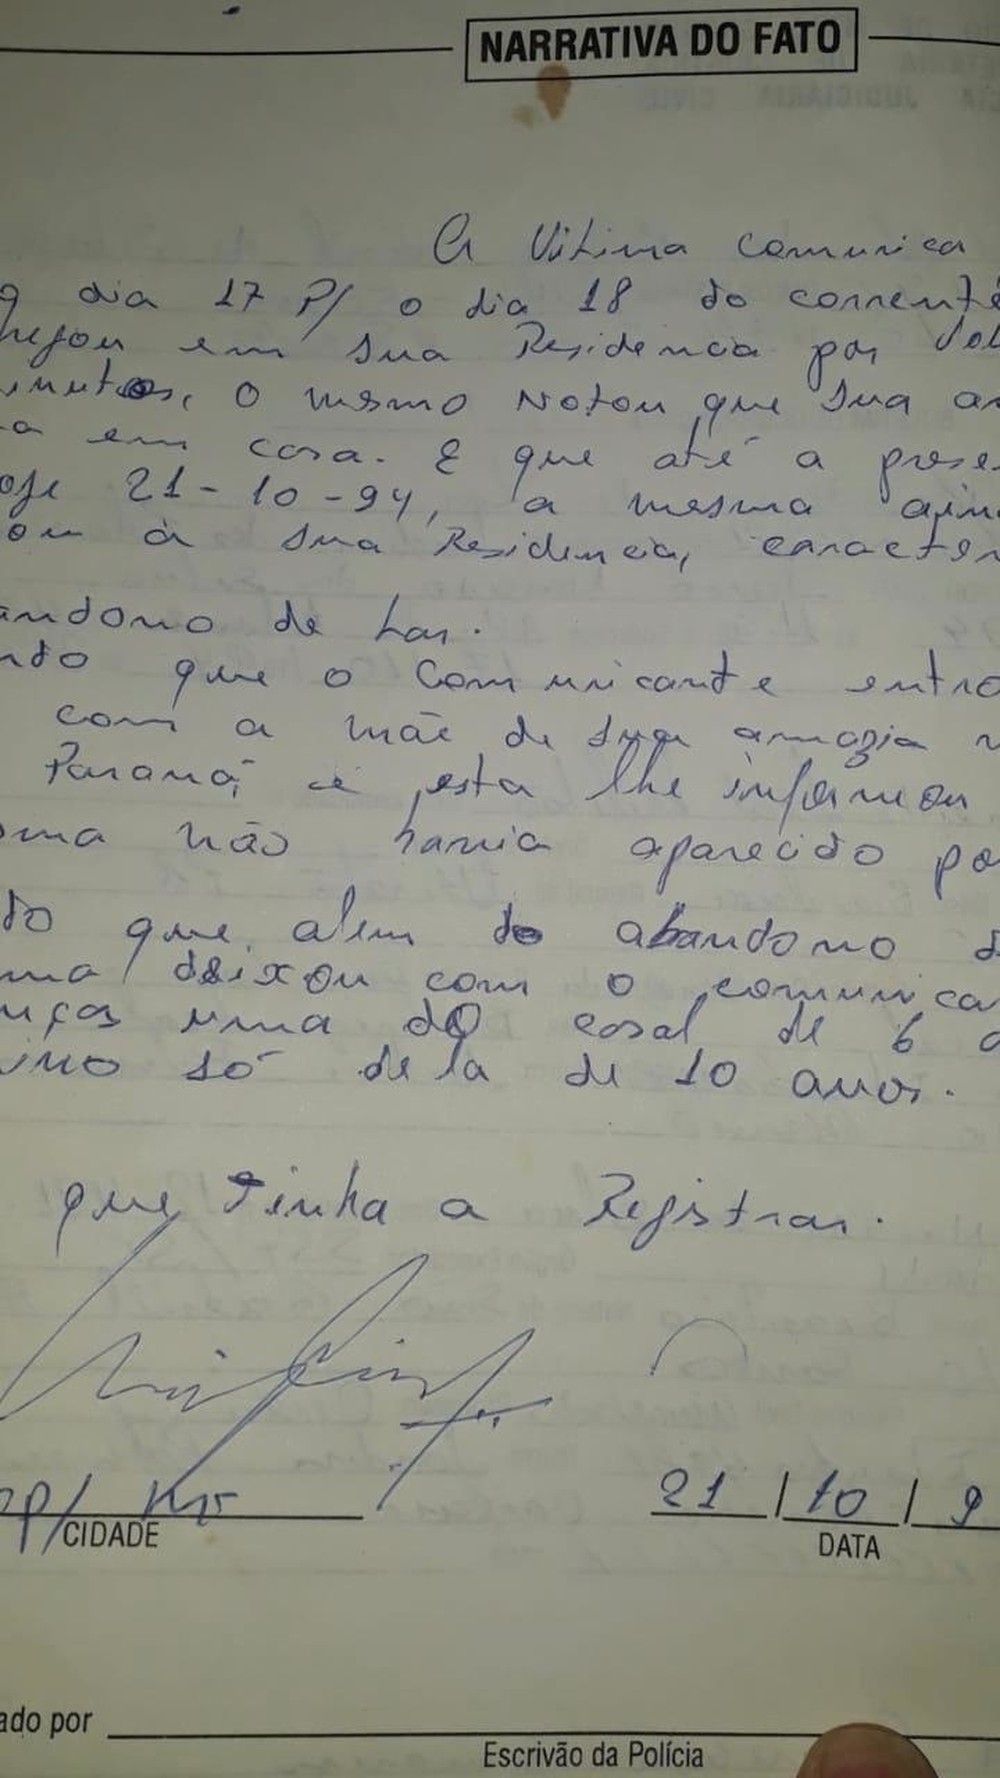 NARRATIVA DO FATO
A Vitima comunica
dia 17 P/ o dia 18 do corrente
em sua Residencia por
inutos, O mesmo Notou que sua
a em casa. E que até a prese
oje 21-10-94, a mesma ain
ou à sua Residencia, caracter
andono de Lar.
ndo que o Comunicante entro
com a mãe de sua amazia
Paraná, e esta lhe informou
sma não havia aparecido po
do que, alem do abandono d
ma deixou com o comunica
nças uma do casal de 6 a
ino só dela de 10 anos.
que tinha a Registrar.
op/ MT
CIDADE
21 / 10 / 9
DATA
ado por
Escrivão da Polícia